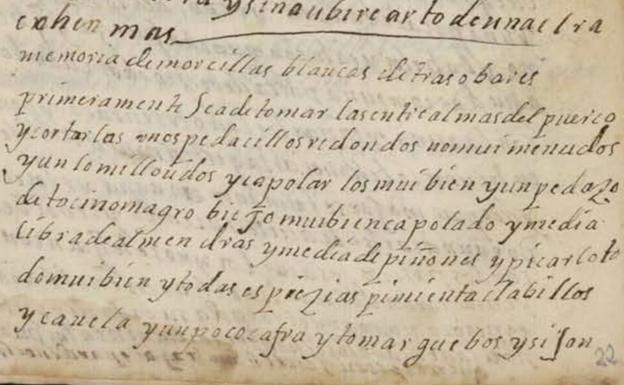 y sinaubire arto de una e lra
echen mas
memoria de morcillas blancas de trasobares
primeramente se a de tomar las entrealmas del puerco
y cortarlas unos pedacillos redondos no mui menudos
y un lomillo u dos y capolar los mui bien y un pedazo
de tocino magro biejo mui bien capolado y media
libra de almendras y media de piñones y picarlo to
do mui bien y todas espezias pimienta clabillos
y canela y un poco cafra y tomar guebos y si son
22